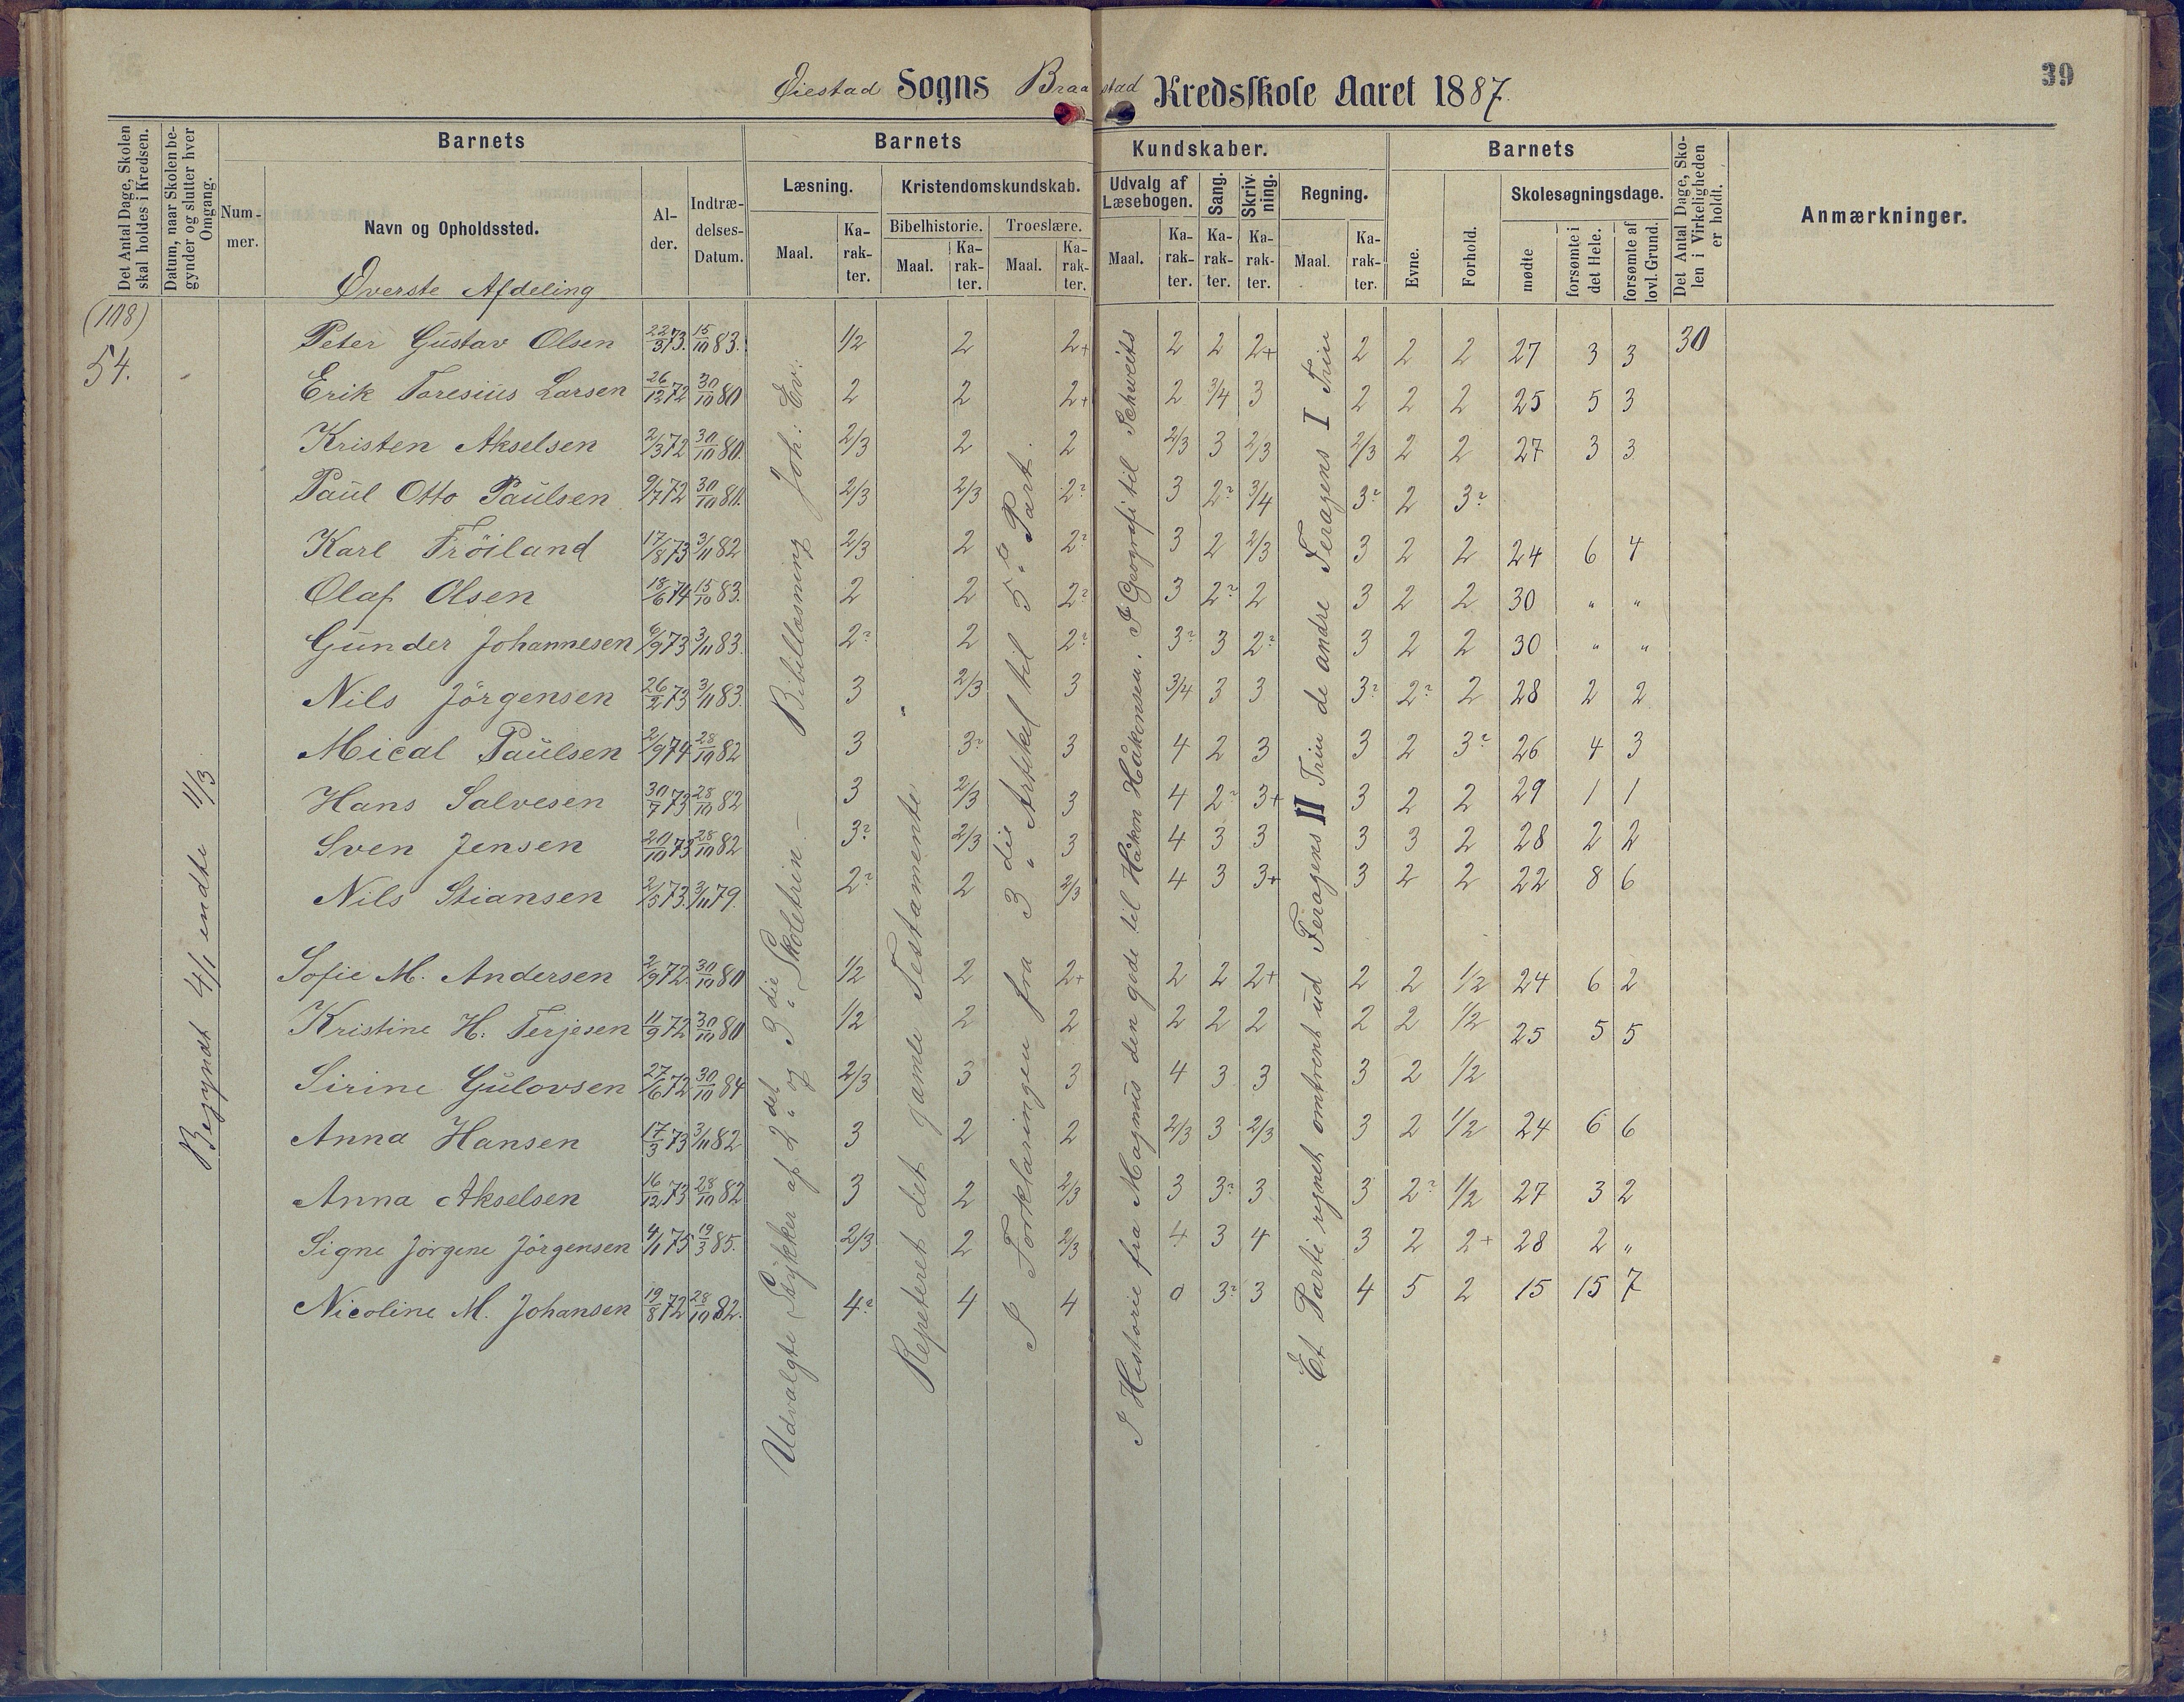 39
Øiestad Sogns Braastad Kredsskole Aaret 1887.
Det Antal Dage, Skolen skal holdes i Kredsen.
Datum, naar Skolen begynder og slutter hver Omgang.
Barnets
Nummer.
Navn og Opholdssted.
Alder.
Indtrædelses-Datum.
Barnets Kundskaber.
Læsning.
Maal.
Karakter.
Kristendomskundskab.
Bibelhistorie.
Maal.
Karakter.
Troeslære.
Maal.
Karakter.
Udvalg af Læsebogen.
Maal.
Karakter.
Sang.
Karakter.
Skrivning.
Karakter.
Regning.
Maal.
Karakter.
Barnets
Evne.
Forhold.
Skolesøgningsdage.
mødte
forsømte i det Hele.
forsømte af lovl. Grund.
Det Antal Dage, Skolen i Virkeligheden er holdt.
Anmærkninger.
Øverste Afdeling
(108)
54.
Begyndt 4/1 endte 11/3
Peter Gustav Olsen 22/3 73. 15/10 83. 1/2 2 2+ 2 2 2+ 2 2 2 27 3 3 30
Erik Taresius Larsen 26/12 72 30/10 80 2 2 2+ 2 3/4 3 2 2 2 25 5 3
Kristen Akselsen 2/3 72 30/10 80. 2/3 2 2 2/3 3 2/3 2/3 2 2 27 3 3
Paul Otto Paulsen 9/7 72 30/10 80. 2/3 2/3 2? 3 2? 3/4 3? 2 3?
Karl Tröiland 17/8 73 3/11 82 2/3 2 2? 3 2 2/3 3 2 2 24 6 4
Olaf Olsen 18/6 74 15/10 83. 2 2 2? 3 2? 2 3 2 2 30 " "
Gunder Johannesen 6/9 73 3/11 83. 2? 2 2? 3? 3 2? 3 2 2 30 " "
Nils Jörgensen 26/2 73 3/11 83. 3 2/3 3 3/4 3 3 3? 2? 2 28 2 2
Mical Paulsen 2/9 74 28/10 82 3 3? 3 4 2 3 3 2 3? 26 4 3
Hans Salvesen 30/7 73 28/10 82 3 2/3 3 4 2? 3+ 3 2 2 29 1 1
Sven Jensen 20/10 73 28/10 82 3? 2/3 3 4 3 3 3 3 2 28 2 2
Nils Stiansen 2/5 73. 3/11 79. 2? 2 2/3 4 3 3+ 3 2 2 22 8 6
Sofie M. Andersen 2/9 72. 30/10 80 1/2 2 2+ 2 2 2+ 2 2 1/2 24 6 2
Kristine H: Terjesen 11/9 72 30/10 80 1/2 2 2 2 2 2 2 2 1/2 25 5 5
Sirine Gulovsen 27/6 72 30/10 84 2/3 3 3 4 3 3 3 2 1/2
Anna Hansen 17/3 73 3/11 82 3 2 2 2/3 3 2/3 3 2 1/2 24 6 6
Anna Akselsen 16/12 73 28/10 82 3 2 2/3 3 3? 3 3 2? 1/2 27 3 2
Signe Jörgine Jörgensen 4/1 75 19/3 85. 2/3 2 2/3 4 3 4 3 2 2+ 28 2 "
Nicoline M. Johansen 19/8 72 28/10 82. 4? 4 4 0 3? 3 4 5 2 15 15 7
Udvalgte Stykker af 2det og 3die Skoletrin. — Bibellæsning Joh: Ev:
Repeteret det gamle Testamente
I Forklaringen fra 3die Artikel til 5te Part.
I Historie fra Magnus den gode til Håkon Håkonsen. I Geografi til Schweits
Et Parti regnet omtrent ud Feragens II Trin de andre Feragens I Trin